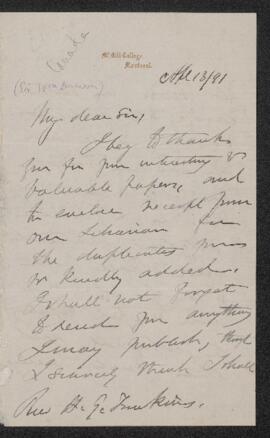 Canada
McGill College,
Montreal.
(Sir Wm Dawson)
Apl 13/91
My dear Sir,
I beg to thank
you for your interesting &
valuable papers, and
to enclose receipt from
our Librarian for
the duplicates you
so kindly added.
I shall not forget
to send you anything
I may publish, though
I scarcely think I shall
Rev H. G.